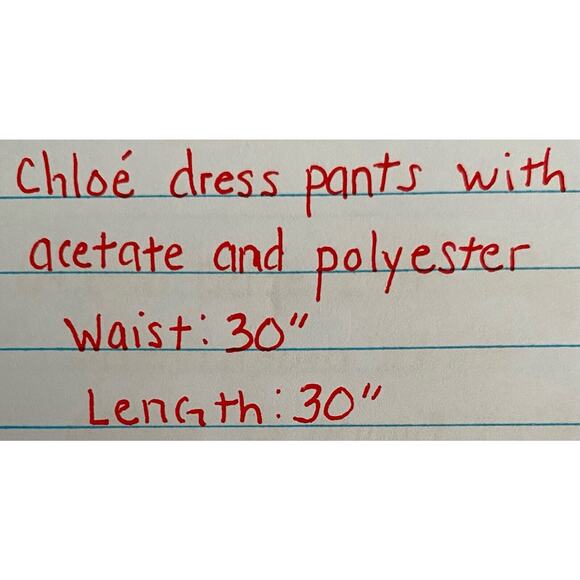 Chloé dress pants with
acetate and polyester
Waist: 30"
Length: 30"